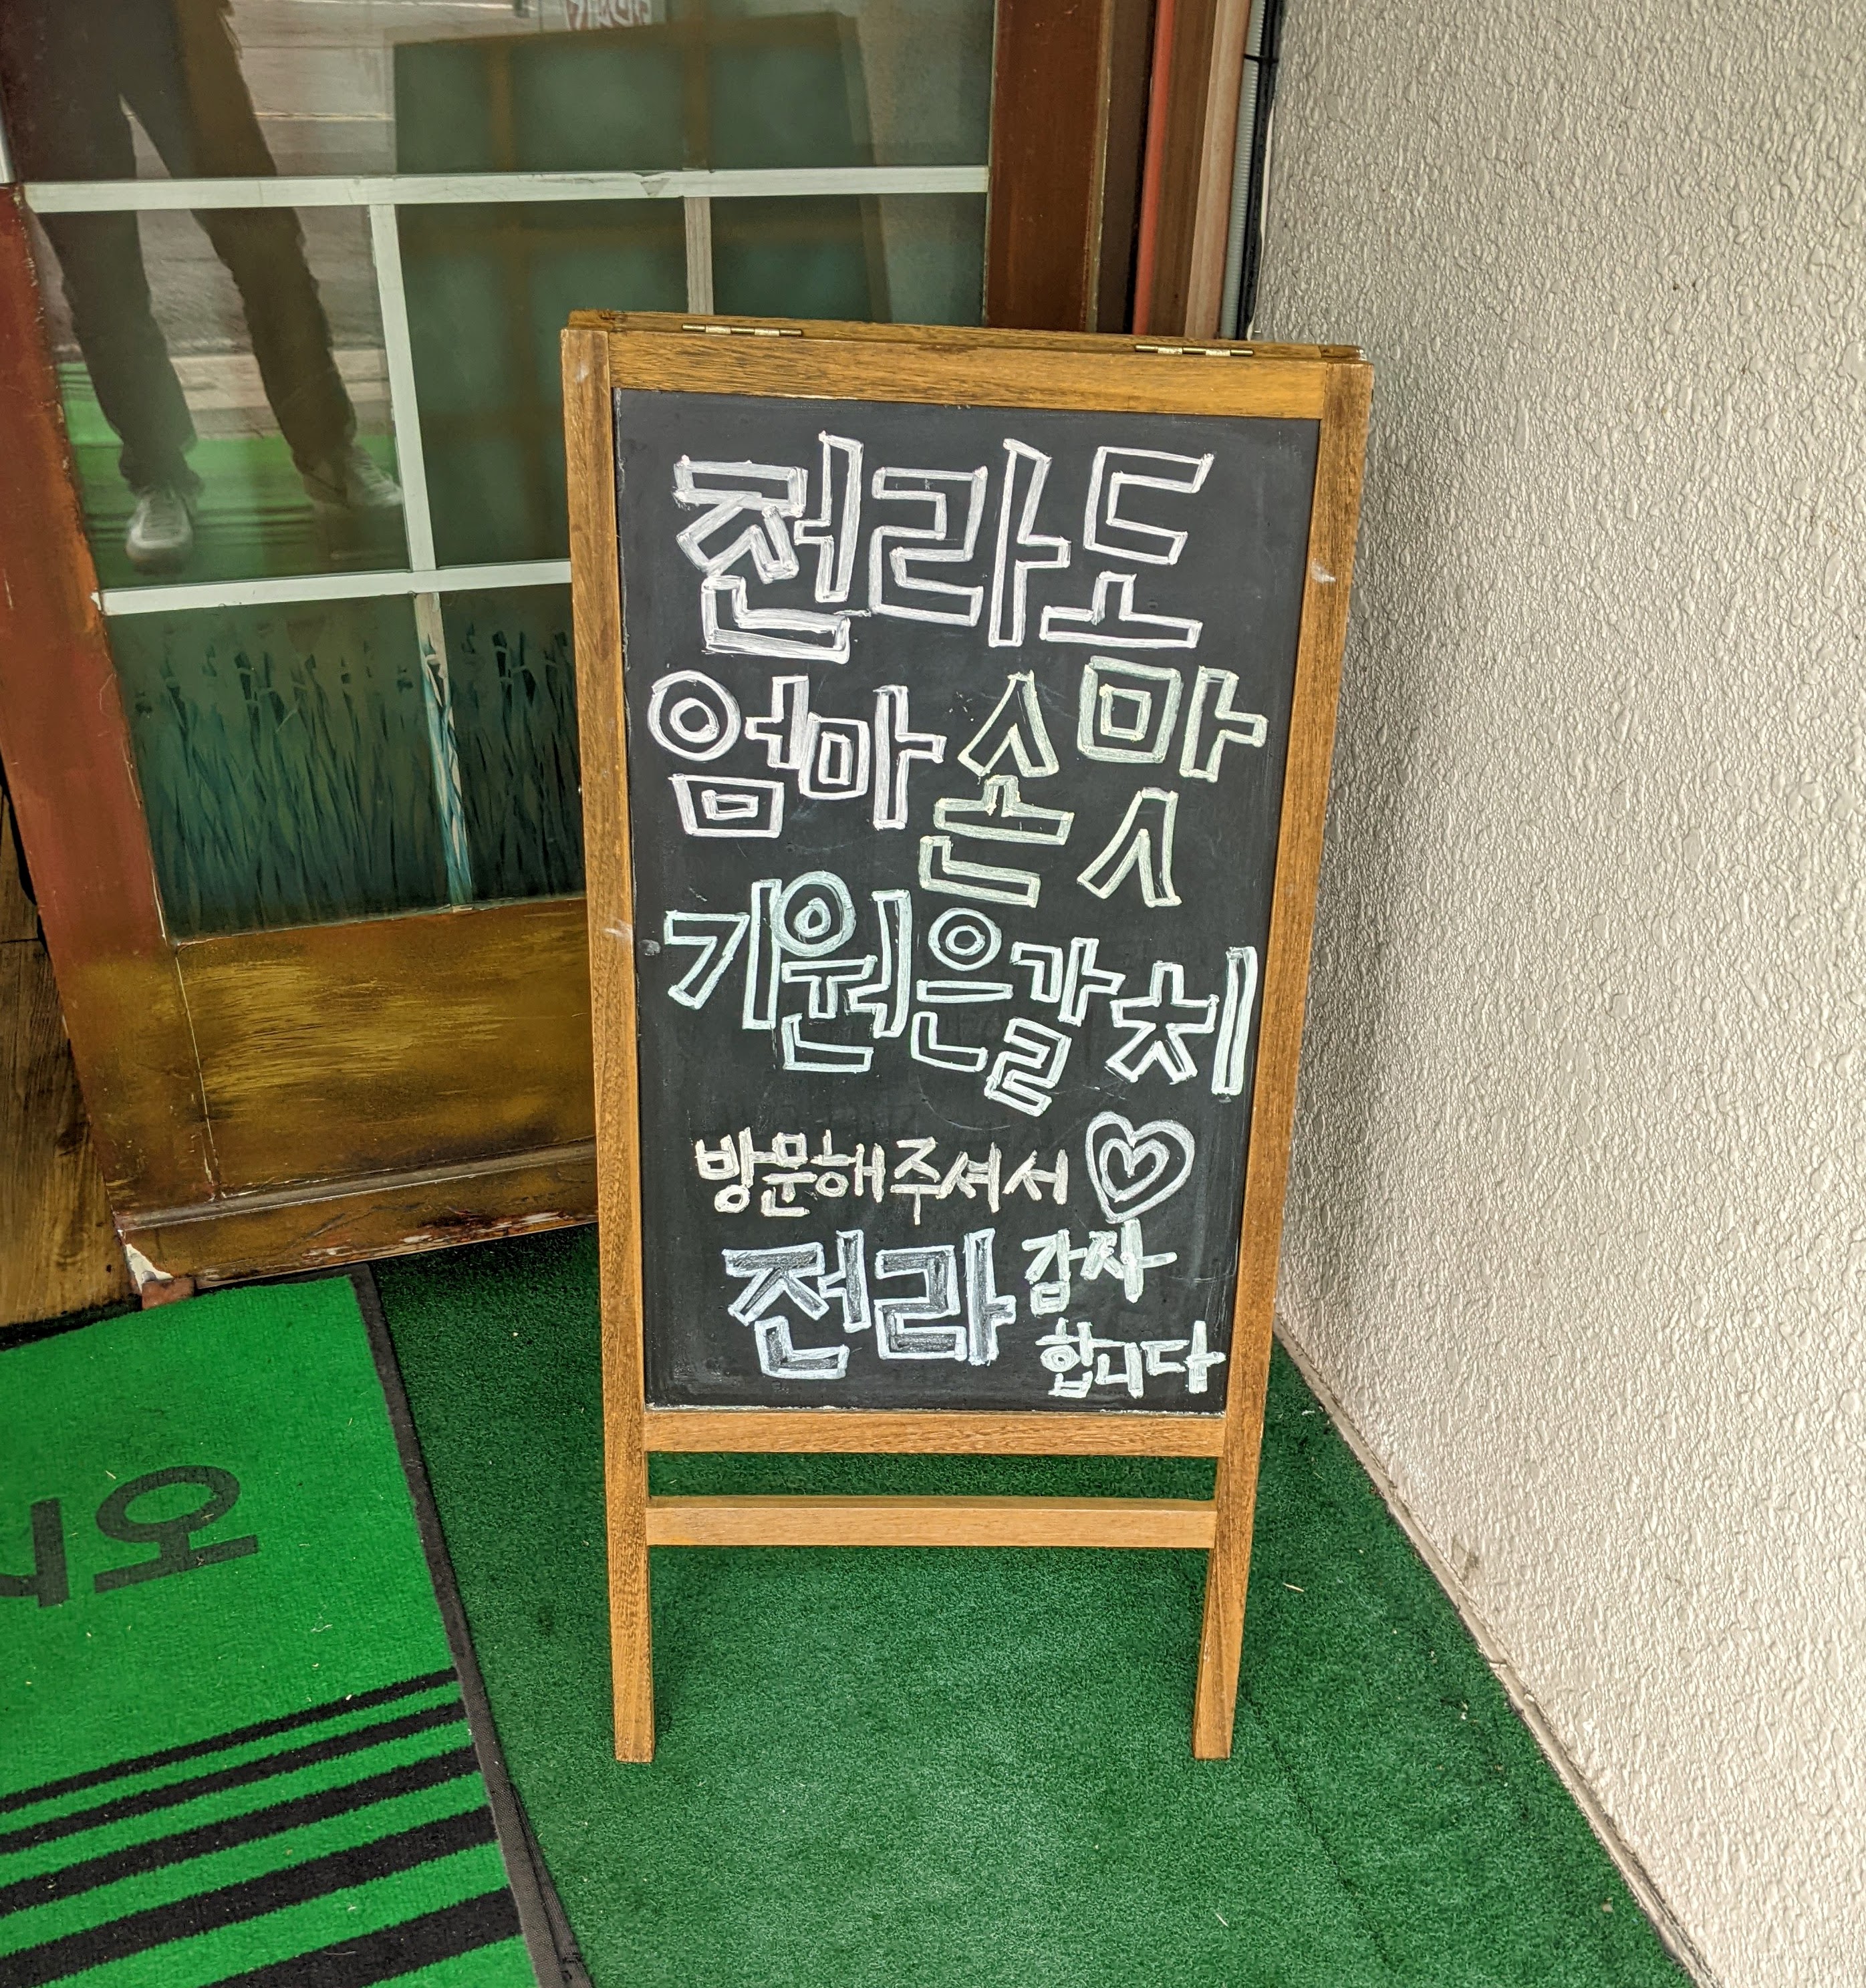 전라도
엄마 손맛
기원은갈치
방문해주셔서
전라 감사
합니다